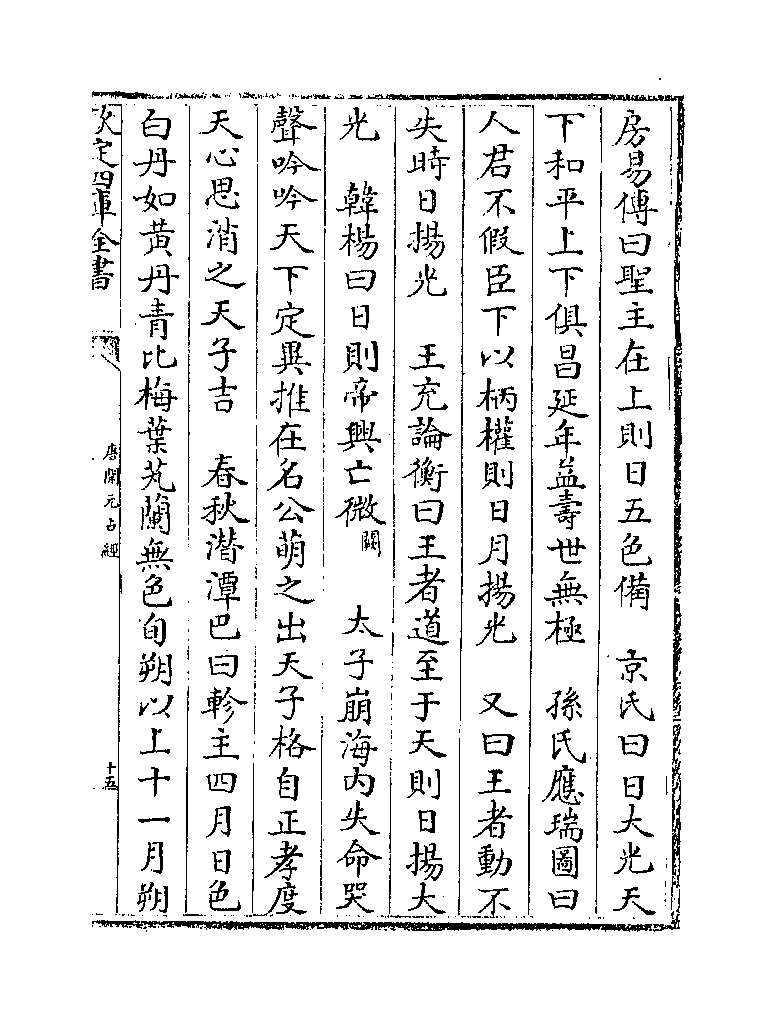 房易傳曰聖主在上則日五色備　京氏曰日大光天
下和平上下俱昌延年益壽世無極　孫氏應瑞圖曰
人君不假臣下以柄權則日月揚光　又曰王者動不
失時日揚光　王充論衡曰王者道至于天則日揚大
光　韓楊曰日則帝興亡微闕　太子崩海内失命哭
聲吟吟天下定異推在名公萌之出天子格自正孝度
天心思消之天子吉　春秋潛潭巴曰軫主四月日色
白丹如黄丹青比梅葉芃蘭無色旬朔以上十一月朔
欽定四庫全書
唐開元占經
十五